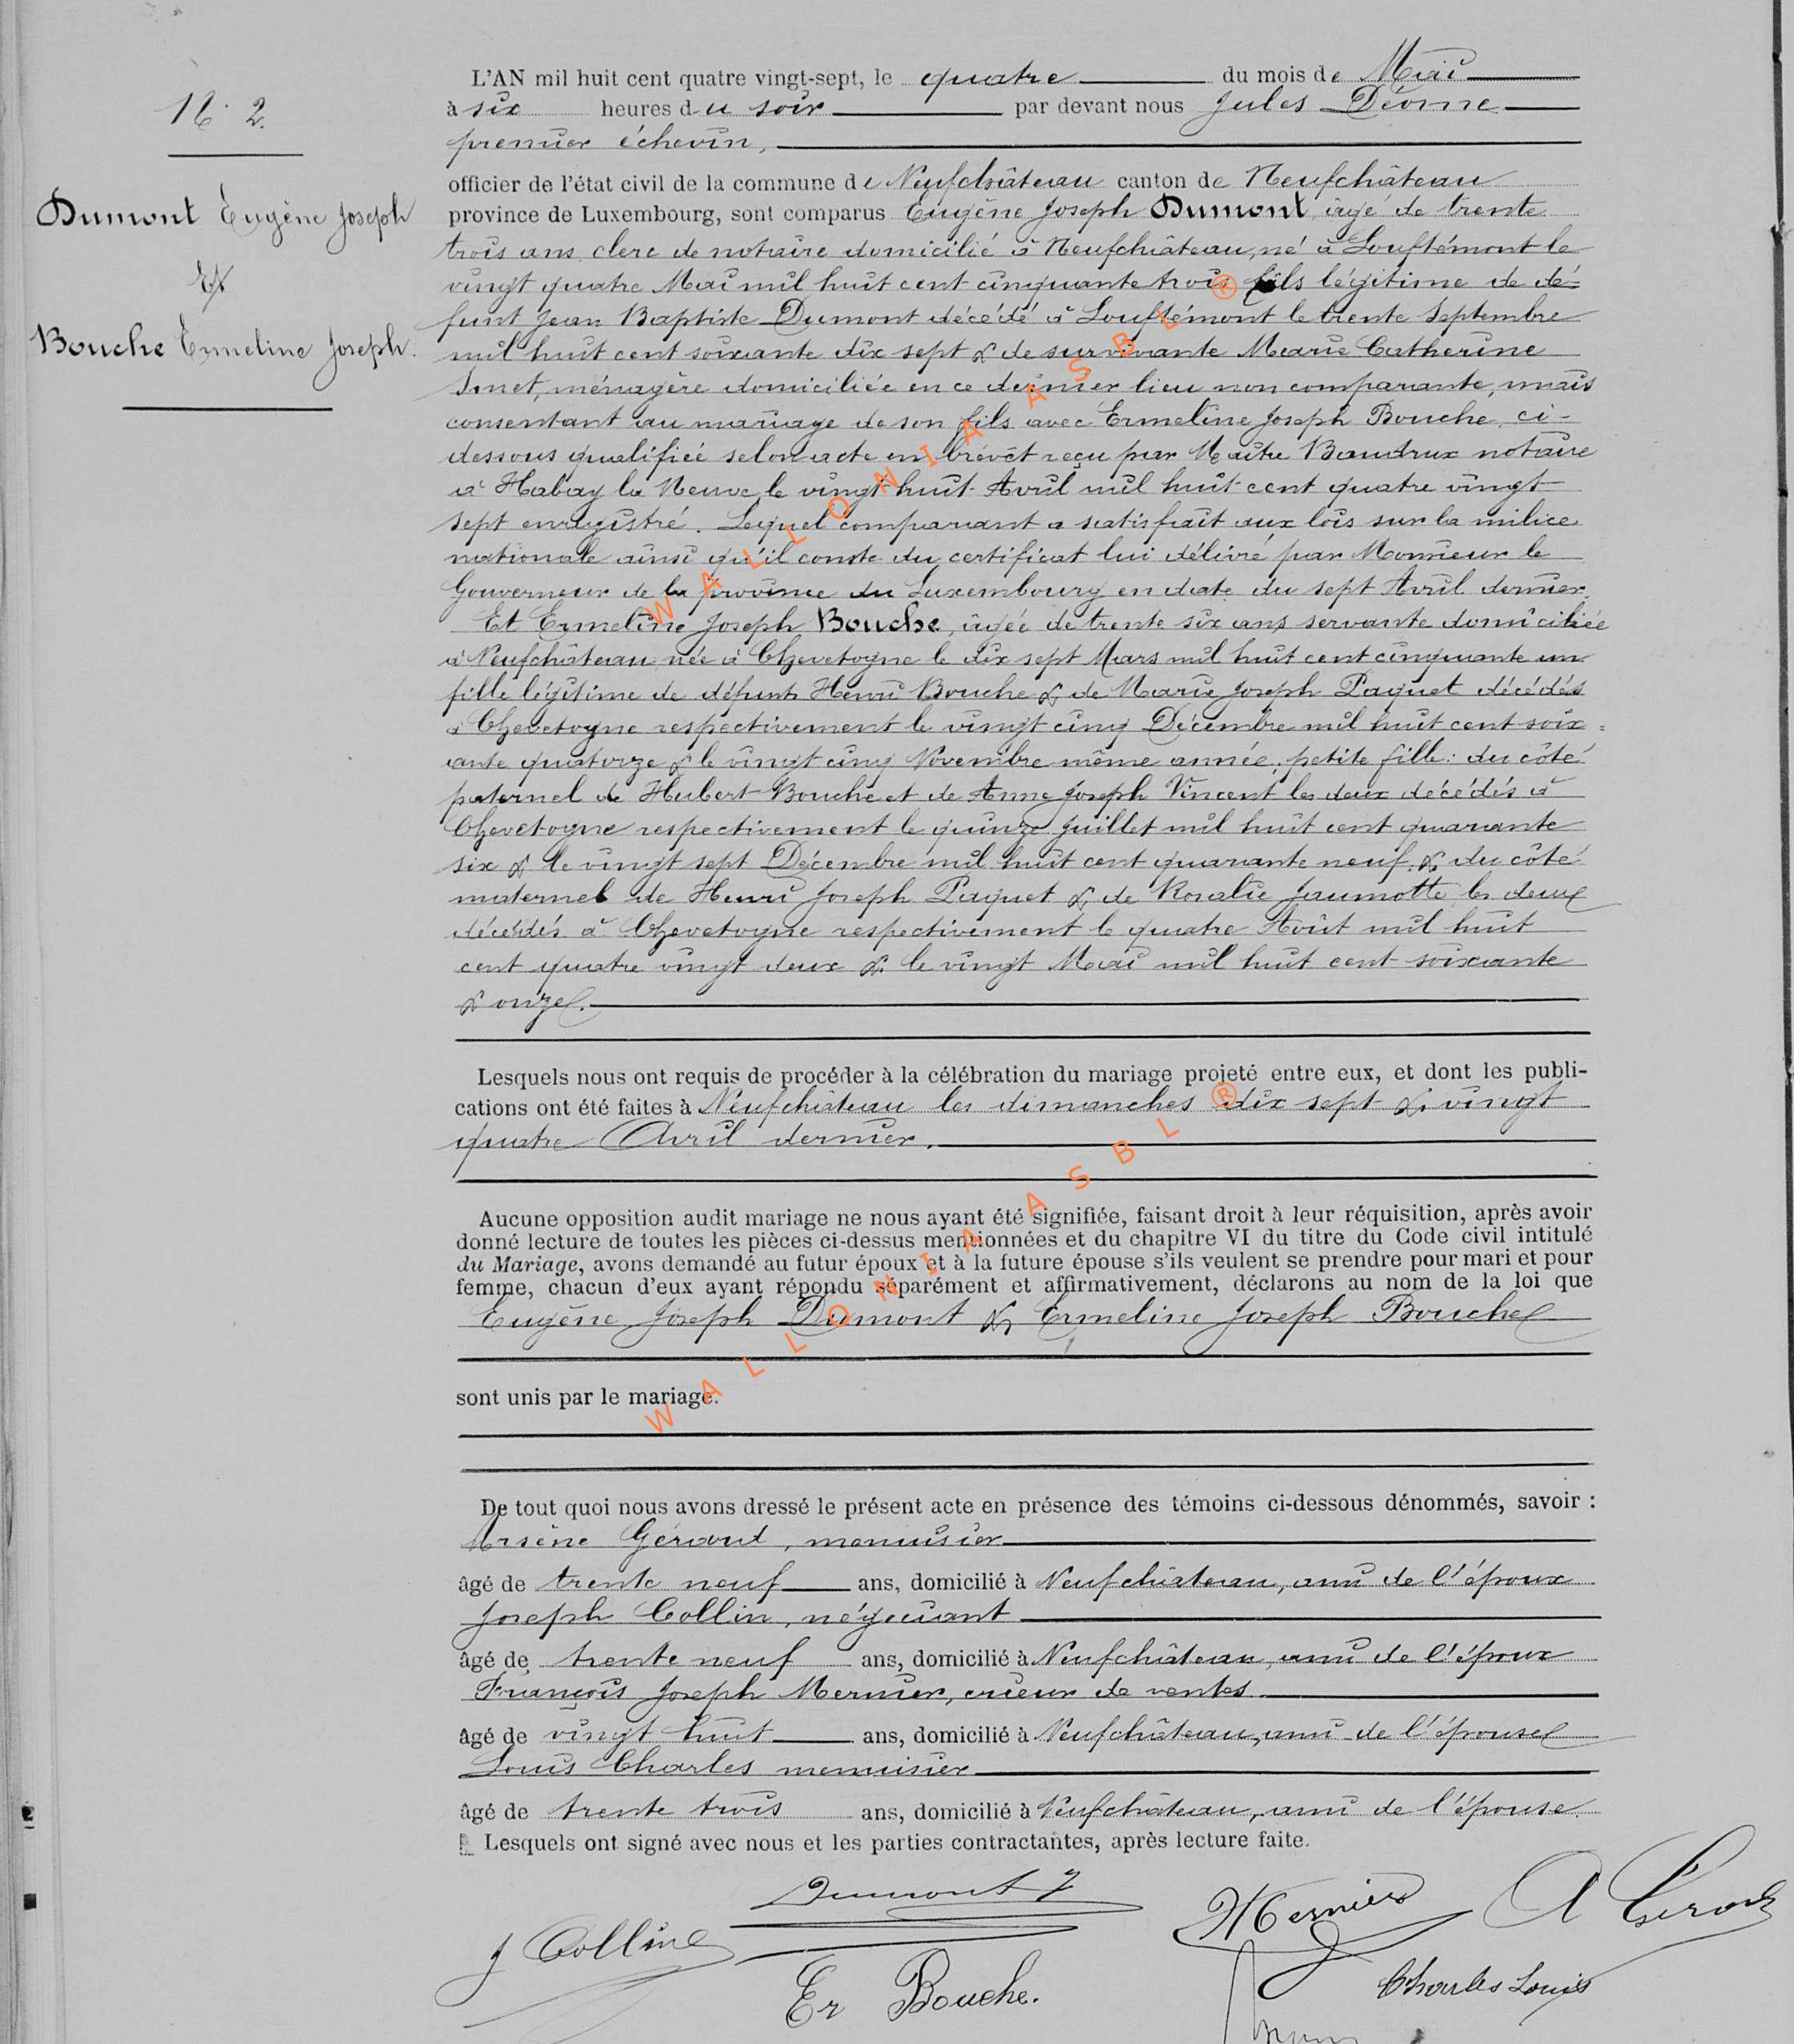 N° 2.
Dumont Eugène Joseph
&
Bouche Ermeline Joseph.
L'AN mil huit cent quatre vingt-sept, le quatre du mois de Mai
à six heures du soir par devant nous Jules
premier échevin,
officier de l'état civil de la commune de Neufchâteau canton de Neufchâteau
province de Luxembourg, sont comparus Eugène Joseph Dumont, âgé de trente
trois ans, clerc de notaire domicilié à Neufchâteau, né à Louftémont le
vingt quatre Mai mil huit cent cinquante trois fils légitime de dé=
funt Jean Baptiste Dumont décédé à Louftémont le trente Septembre
mil huit cent soixante dix sept & de survivante Marie Catherine
ménagère domiciliée en ce dernier lieu non comparante, mais
consentant au mariage de son fils avec Ermeline Joseph Bouche, ci-
dessous qualifiée selon acte en brévet reçu par Maître notaire
à Habay la Neuve le vingt huit Avril mil huit cent quatre vingt
sept enregistré. Lequel comparant a satisfait aux lois sur la milice
nationale ainsi qu'il conste du certificat lui délivré par Monsieur le
Gouverneur de la province du Luxembourg en date du sept Avril dernier.
Et Ermeline Joseph Bouche, âgée de trente six ans, servante domiciliée
à Neufchâteau née à Chevetogne le dix sept Mars mil huit cent cinquante un
fille légitime de défunts Henri Bouche & de Marie Joseph Paquet décédés
à Chevetogne respectivement le vingt cinq Décembre mil huit cent soix=
ante quatorze & le vingt cinq Novembre même année; petite fille: du côté
paternel de Hubert Bouche et de Anne Joseph Vincent les deux décédés à
Chevetogne respectivement le quinze Juillet mil huit cent quarante
six & le vingt sept Décembre mil huit cent quarante neuf, & du côté
maternel de Henri Joseph Paquet & de Rosalie Jaumotte les deux
décédés à Chevetogne respectivement le quatre Août mil huit
cent quatre vingt deux & le vingt Mai mil huit cent soixante
& onze.
Lesquels nous ont requis de procéder à la célébration du mariage projeté entre eux, et dont les publi-
cations ont été faites à Neufchâteau les dimanches dix sept & vingt
quatre Avril dernier.
Aucune opposition audit mariage ne nous ayant été signifiée, faisant droit à leur réquisition, après avoir
donné lecture de toutes les pièces ci-dessus mentionnées et du chapitre VI du titre du Code civil intitulé
du Mariage, avons demandé au futur époux et à la future épouse s'ils veulent se prendre pour mari et pour
femme, chacun d'eux ayant répondu séparément et affirmativement, déclarons au nom de la loi que
Eugène Joseph Dumont & Ermeline Joseph Bouche
sont unis par le mariage.
De tout quoi nous avons dressé le présent acte en présence des témoins ci-dessous dénommés, savoir :
Arsène Gérard, menuisier
âgé de trente neuf ans, domicilié à Neufchâteau, ami de l'époux
Joseph Collin, négociant
âgé de trente neuf ans, domicilié à Neufchâteau, ami de l'époux
François Joseph Mernier, crieur de ventes
âgé de vingt huit ans, domicilié à Neufchâteau, ami de l'épouse
Louis Charles menuisier
âgé de trente trois ans, domicilié à Neufchâteau, ami de l'épouse.
Lesquels ont signé avec nous et les parties contractantes, après lecture faite.
Dumont J
Mernier
A Gérard
J Collin
Er Bouche.
Charles Louis
WALLONIA ASBL ®
WALLONIA ASBL ®